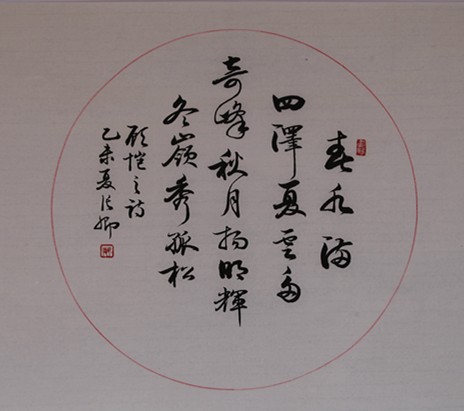 春水满
四澤夏云多
奇峰秋月扬明輝
冬嶺秀孤松
顾恺之诗
乙未夏